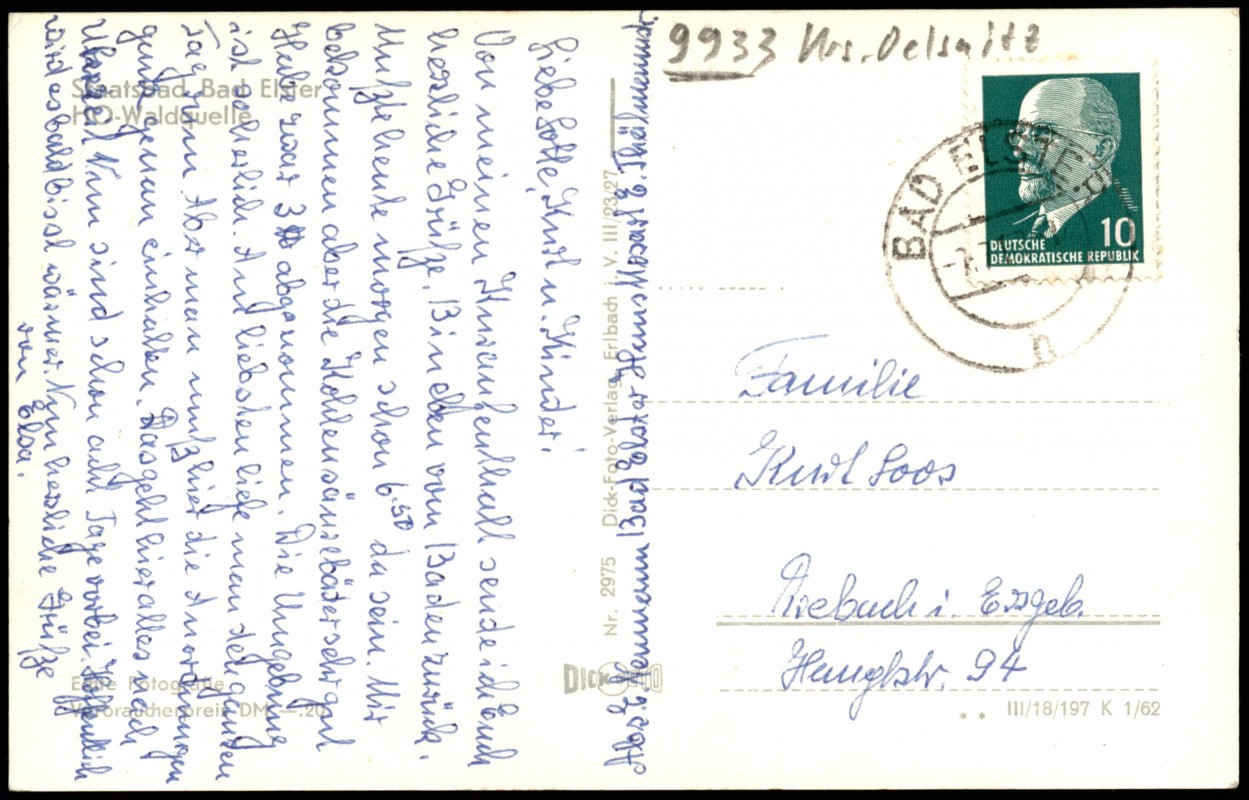 Staatsbad Bad Elster
HO-Waldquelle
Liebe Lotte, Kurt u. Kinder!
Von meinen Kuraufenthalt sende ich Euch
herzliche Grüße. Bin eben von Baden zurück.
Mußte heute morgen schon 6.50 da sein. Mir
bekommen aber die Kohlensäurebäder sehr gut
Habe zwar 3 ℔ abgenommen. Die Umgebung
ist so herrlich. Am liebsten liefe man den ganzen
Tag rum. Aber man muß hier die Anordnungen
ganz genau einhalten. Das geht hier alles nach
Uhrzeit. Nun sind schon acht Tage vorbei. Hoffentlich
wird es bald bissl wärmer. Nun herzliche Grüße
von Elsa.
Echte Fotografie
Verbraucherpreis DM —.20
Abs. E. Bad Elster Haus Mozart E. Thälmannstr.
Nr. 2975 Dick-Foto-Verlag, Erlbach i. V. III/23/27
DICK FOTO
9933 Krs. Oelsnitz
BAD ELSTER
n
10
DEUTSCHE
DEMOKRATISCHE REPUBLIK
Familie
Kurt Loos
i. Erzgeb.
94
* * III/18/197 K 1/62